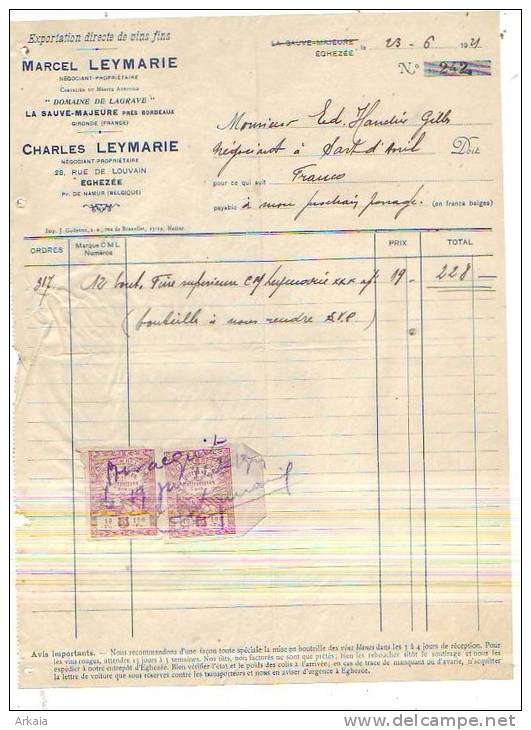 Exportation directe de vins fins
MARCEL LEYMARIE
NÉGOCIANT-PROPRIÉTAIRE
CHEVALIER DU MÉRITE AGRICOLE
" DOMAINE DE LAGRAVE "
LA SAUVE-MAJEURE PRÈS BORDEAUX
GIRONDE (FRANCE)
CHARLES LEYMARIE
NÉGOCIANT-PROPRIÉTAIRE
28, RUE DE LOUVAIN
ÉGHEZÉE
PV. DE NAMUR (BELGIQUE)
LA SAUVE-MAJEURE
ÉGHEZÉE le 23-6 1921
N° 242
Monsieur Ed.
négociant à Sart d'Avril Doit
pour ce qui suit Franco
payable à mon prochain passage. (en francs belges)
ORDRES Marque C M L Numéros PRIX TOTAL
317 12 bout. Fine supérieure CM Leymarie xxx 19 — 228 —
(bouteille à nous rendre S.V.P.)
Pour acquit
Avis importants. — Nous recommandons d'une façon toute spéciale la mise en bouteille des vins blancs dès les 3 à 4 jours de réception. Pour
les vins rouges, attendre 15 jours à 3 semaines. Nos fûts, non facturés ne sont que prêtés; bien les reboucher sitôt le soutirage et nous les
expédier à notre entrepôt d'Éghezée. Bien vérifier l'état et le poids des colis à l'arrivée; en cas de trace de manquant ou d'avarie, n'acquitter
la lettre de voiture que sous réserves contre les transporteurs et nous en aviser d'urgence à Éghezée.
Arkaia
www.delcampe.net